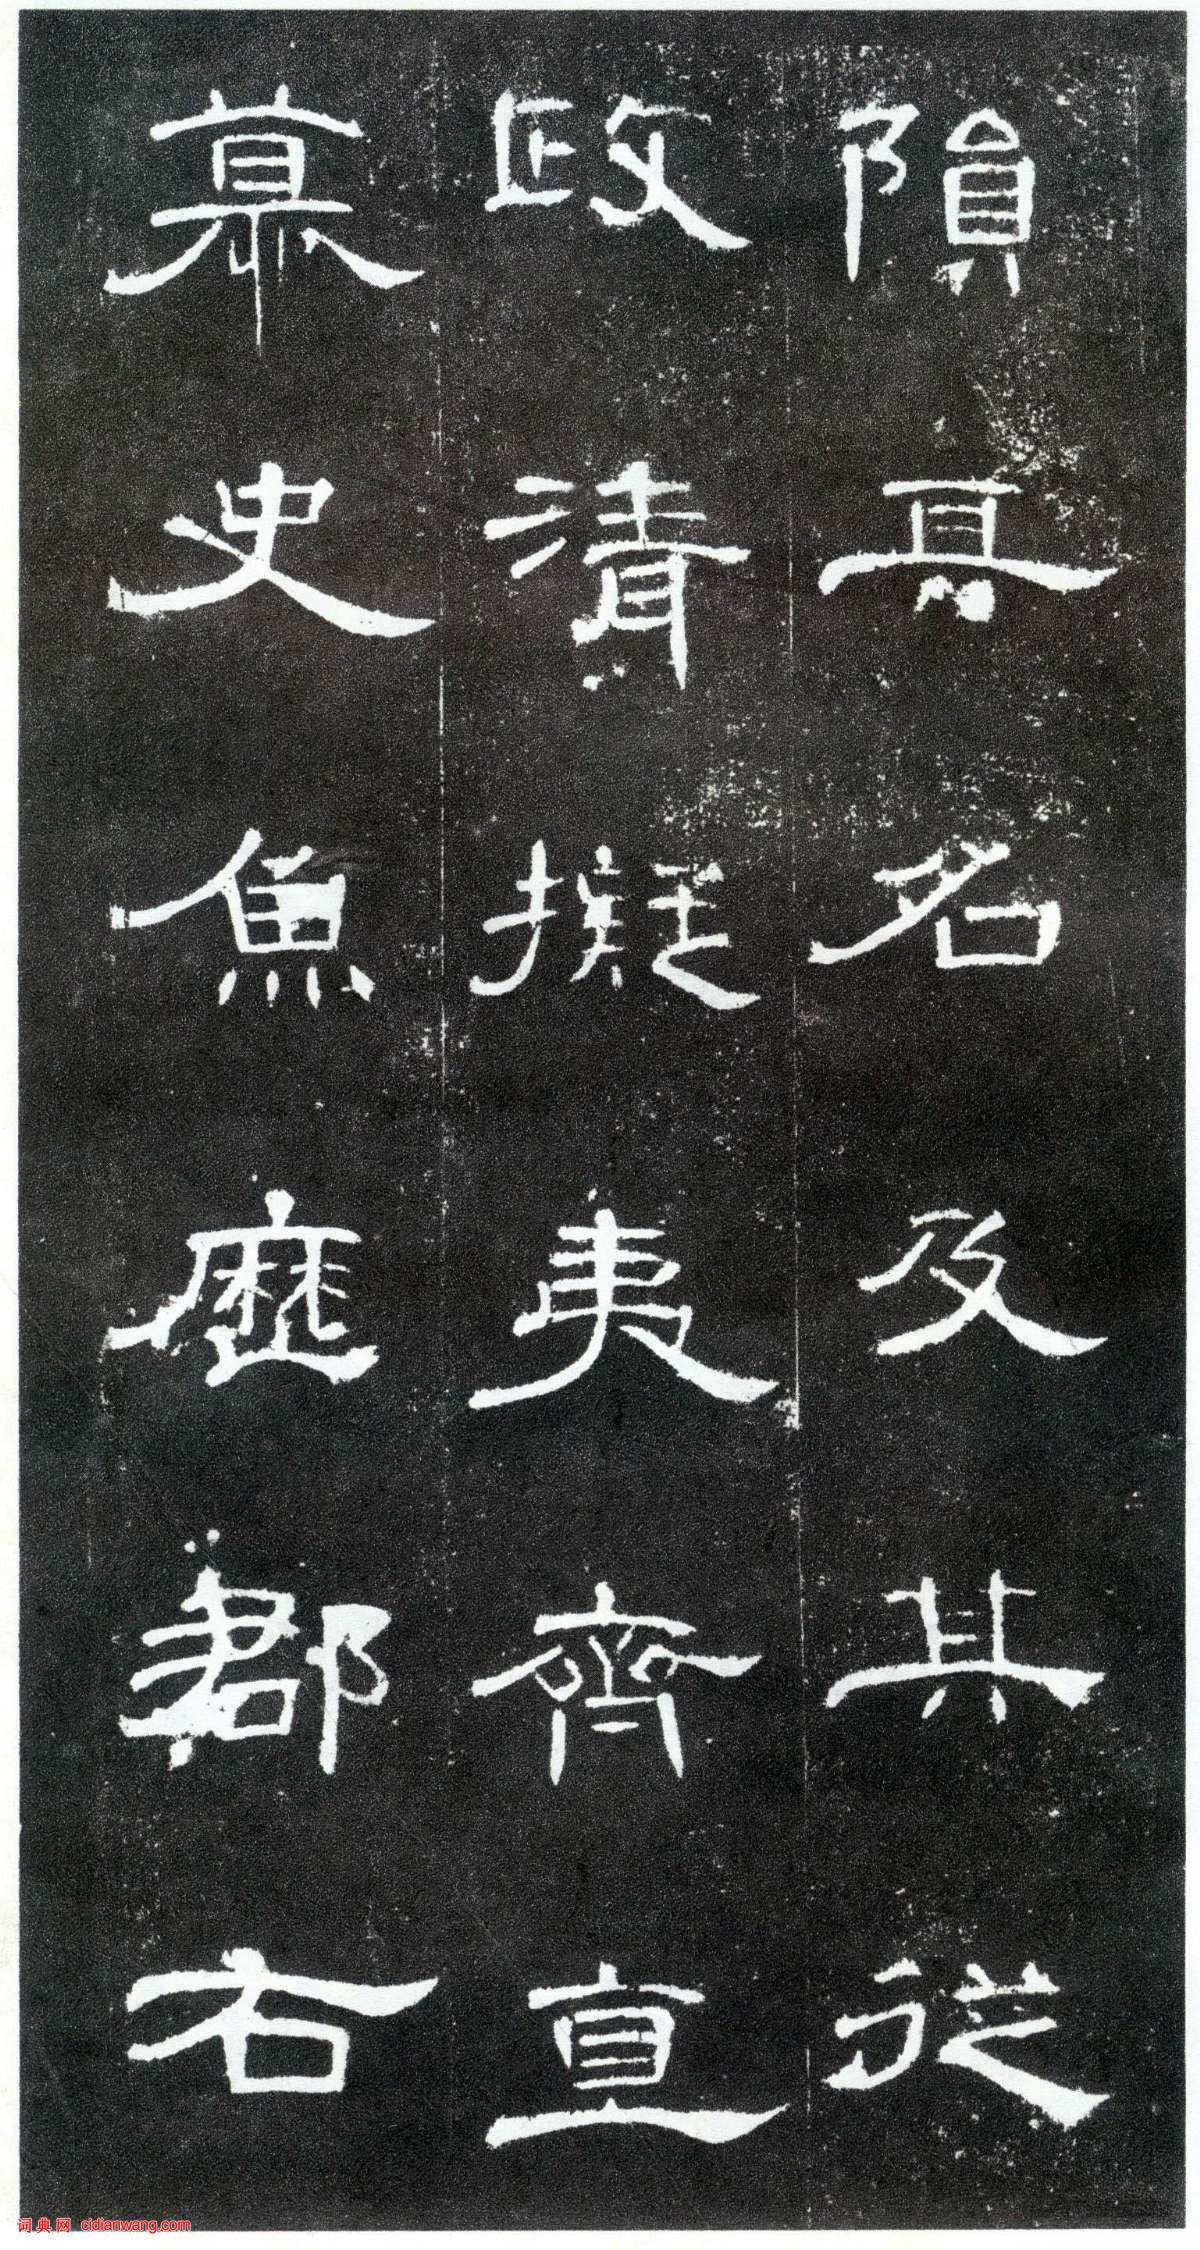 隕其名及其從
政清擬夷齊直
慕史魚歷郡右
词典网 cidianwang.com